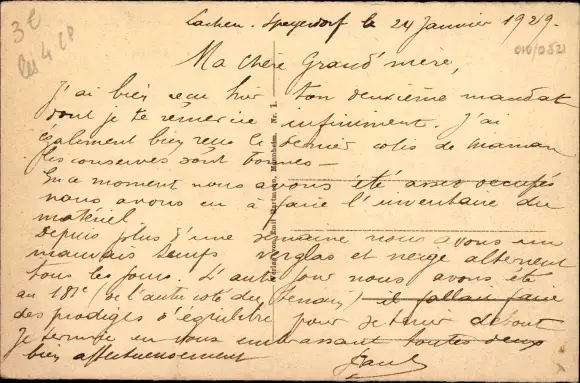 3€
les 4 CP
Lachen-Speyerdorf le 24 Janvier 1929.
010/0821
Ma chère Grand'mère,
J'ai bien reçu hier ton deuxième mandat
dont je te remercie infiniment. J'ai
également bien reçu le dernier colis de maman
les conserves sont bonnes -
En ce moment nous avons été assez occupés
nous avons eu à faire l'inventaire du
matériel
Depuis plus d'une semaine nous avons un
mauvais temps verglas et neige alternent
tous les jours. L'autre jour nous avons été
au 18 (de l'autre coté du) il fallait faire
des prodiges d'équilibre pour se tenir debout
Je termine en vous embrassant toutes deux
bien affectueusement
Verlag von Emil Hartmann, Mannheim. Nr. 1.